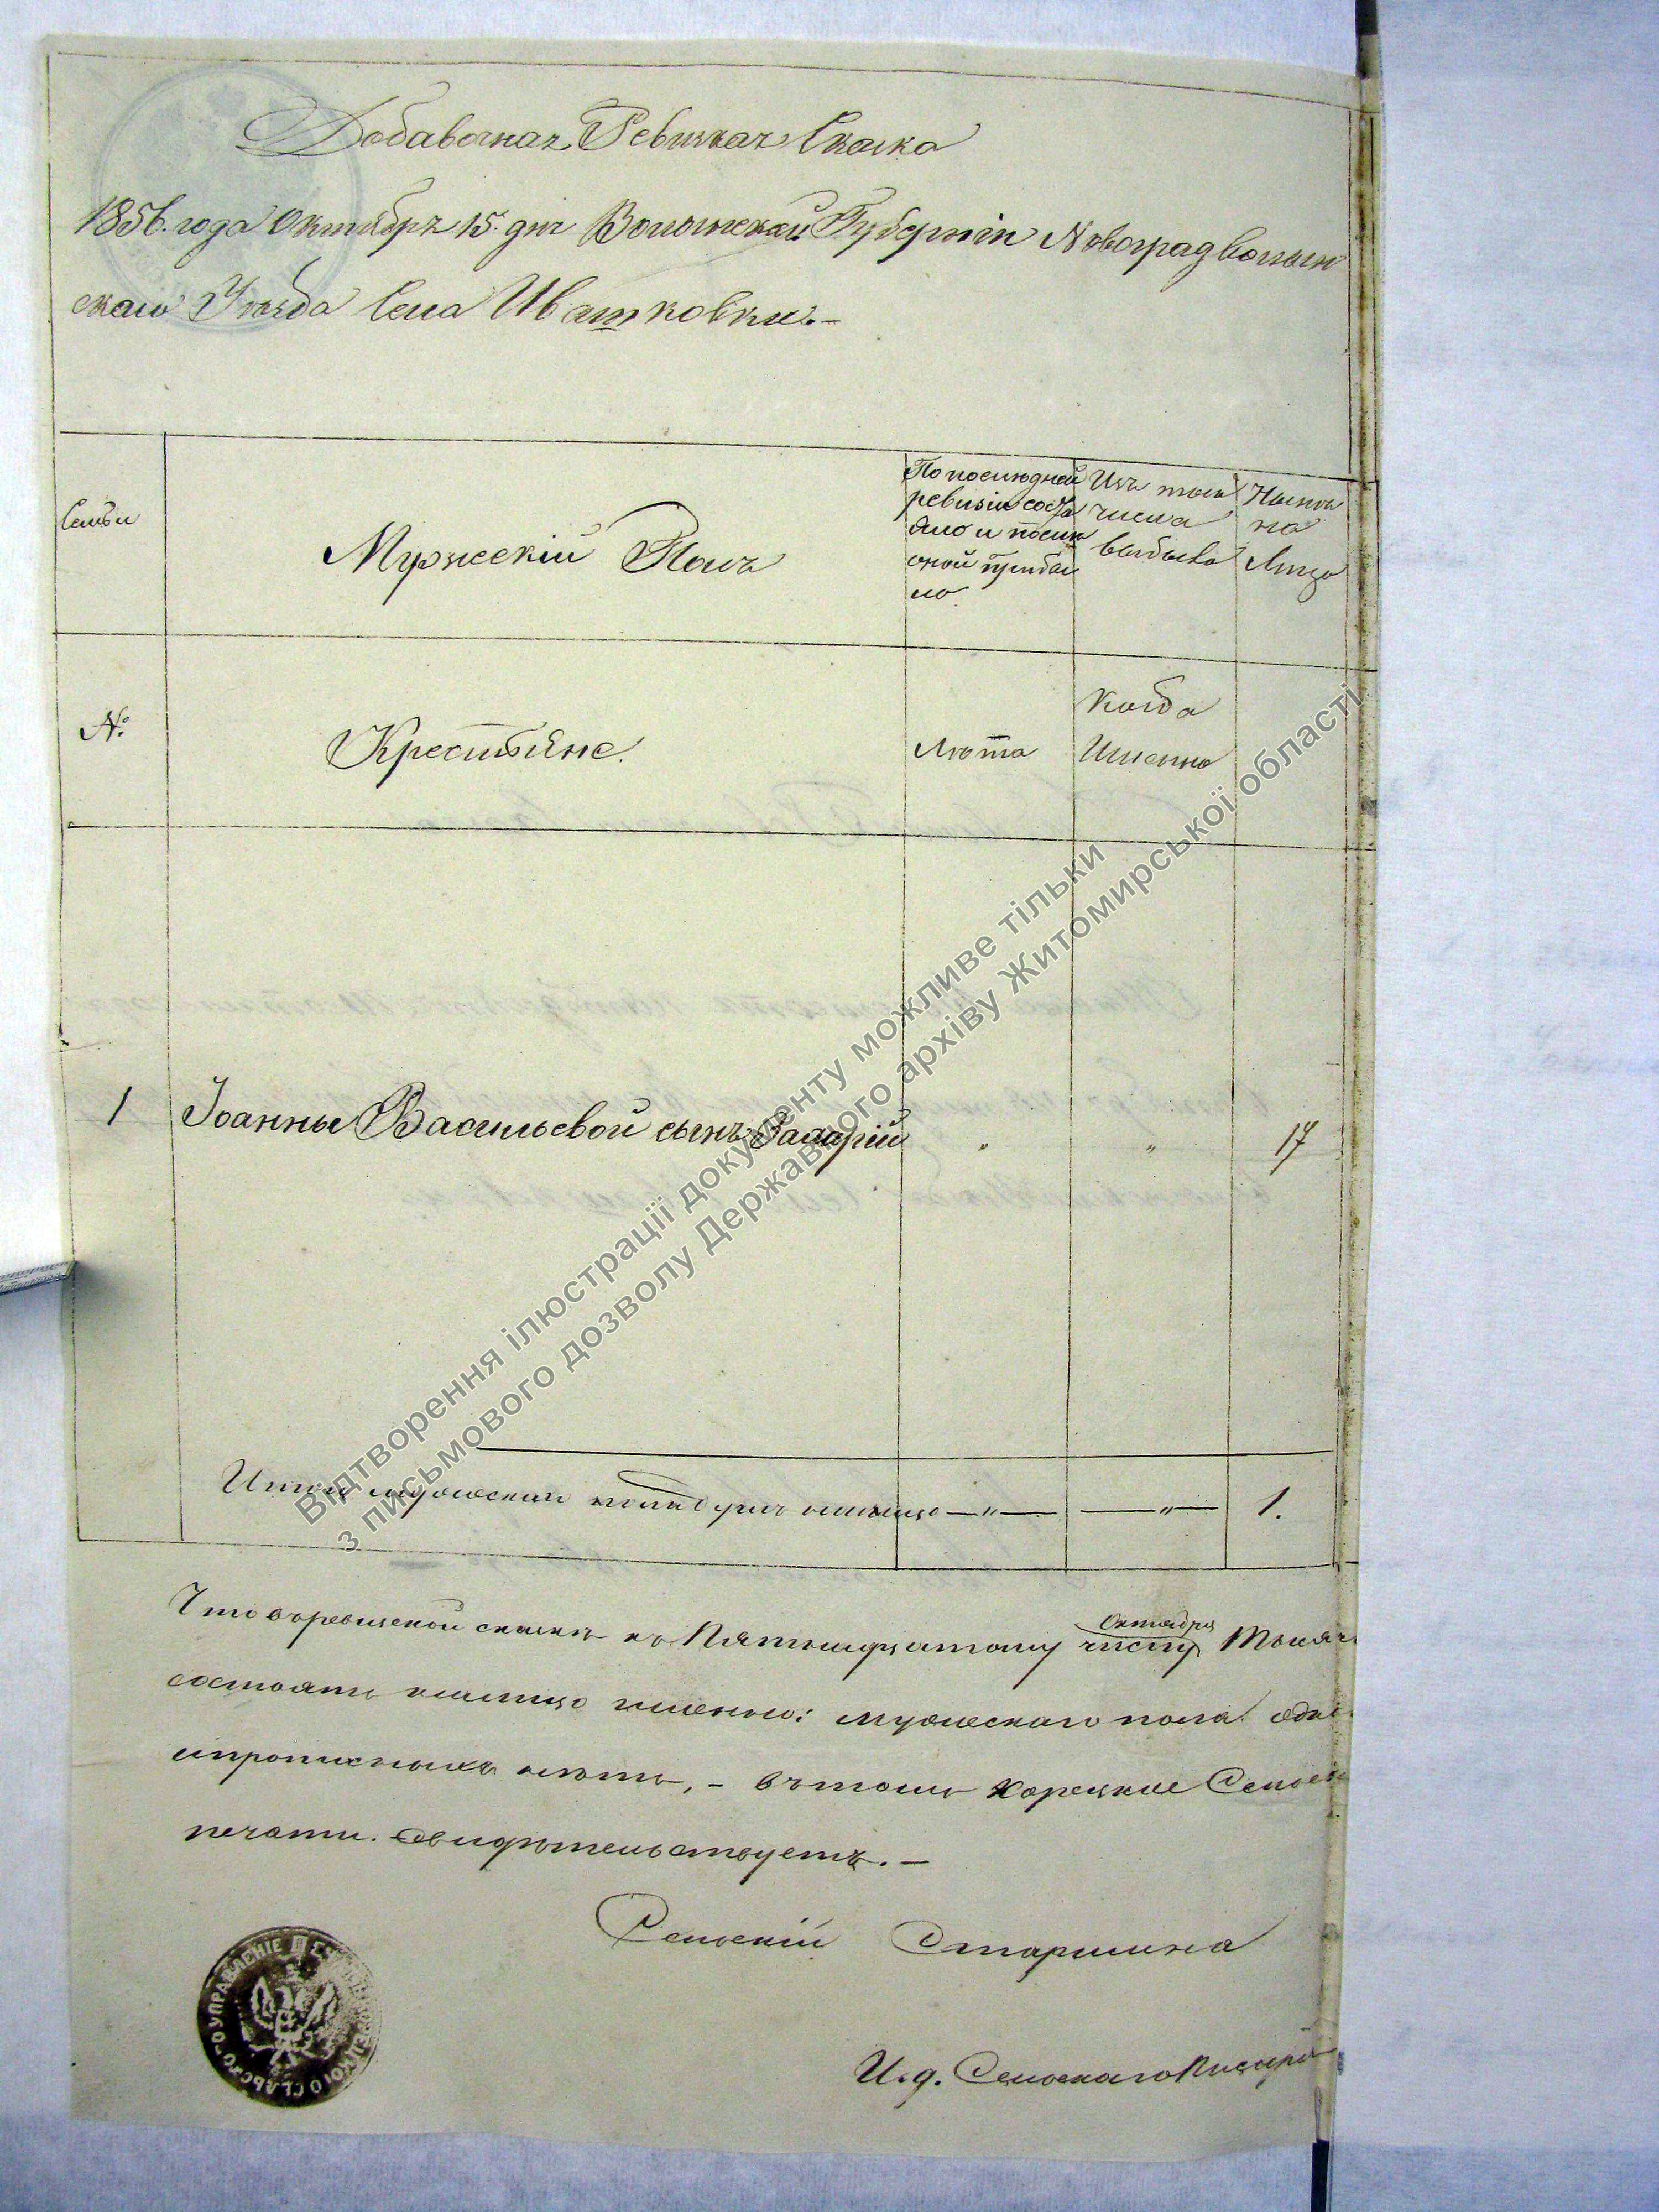 Добавочная Ревизкая Сказка
1856. года Октября 15. дня Волынской Губерніи Новоградволын
скаго Уезда Села Ивашковки.-
Семьи
Мужескій Полъ
По последней
ревизіи состо
яло и после
оной прибы
ло
Изъ того
числа
выбыло
Ныне
на
Лицо
№.
Крестьяне.
Лета
Когда
Именно
1
Іоанны Васильевой сынъ Захарій
"
"
17
Итого мужеска пола душъ налицо —"— —"— 1.
Что въ ревизской сказке къ Пятнадцатому числу
Октября
состоитъ налицо именно: мужескаго пола
прописныхъ летъ, – въ томъ Корецкое
печати. свидетельствуетъ. –
Сельскій Старшина
И. д. Сельскаго Писаря
УПРАВЛЕНІЕ
Відтворення ілюстрації документу можливе тільки
з письмового дозволу Державного архіву Житомирської області